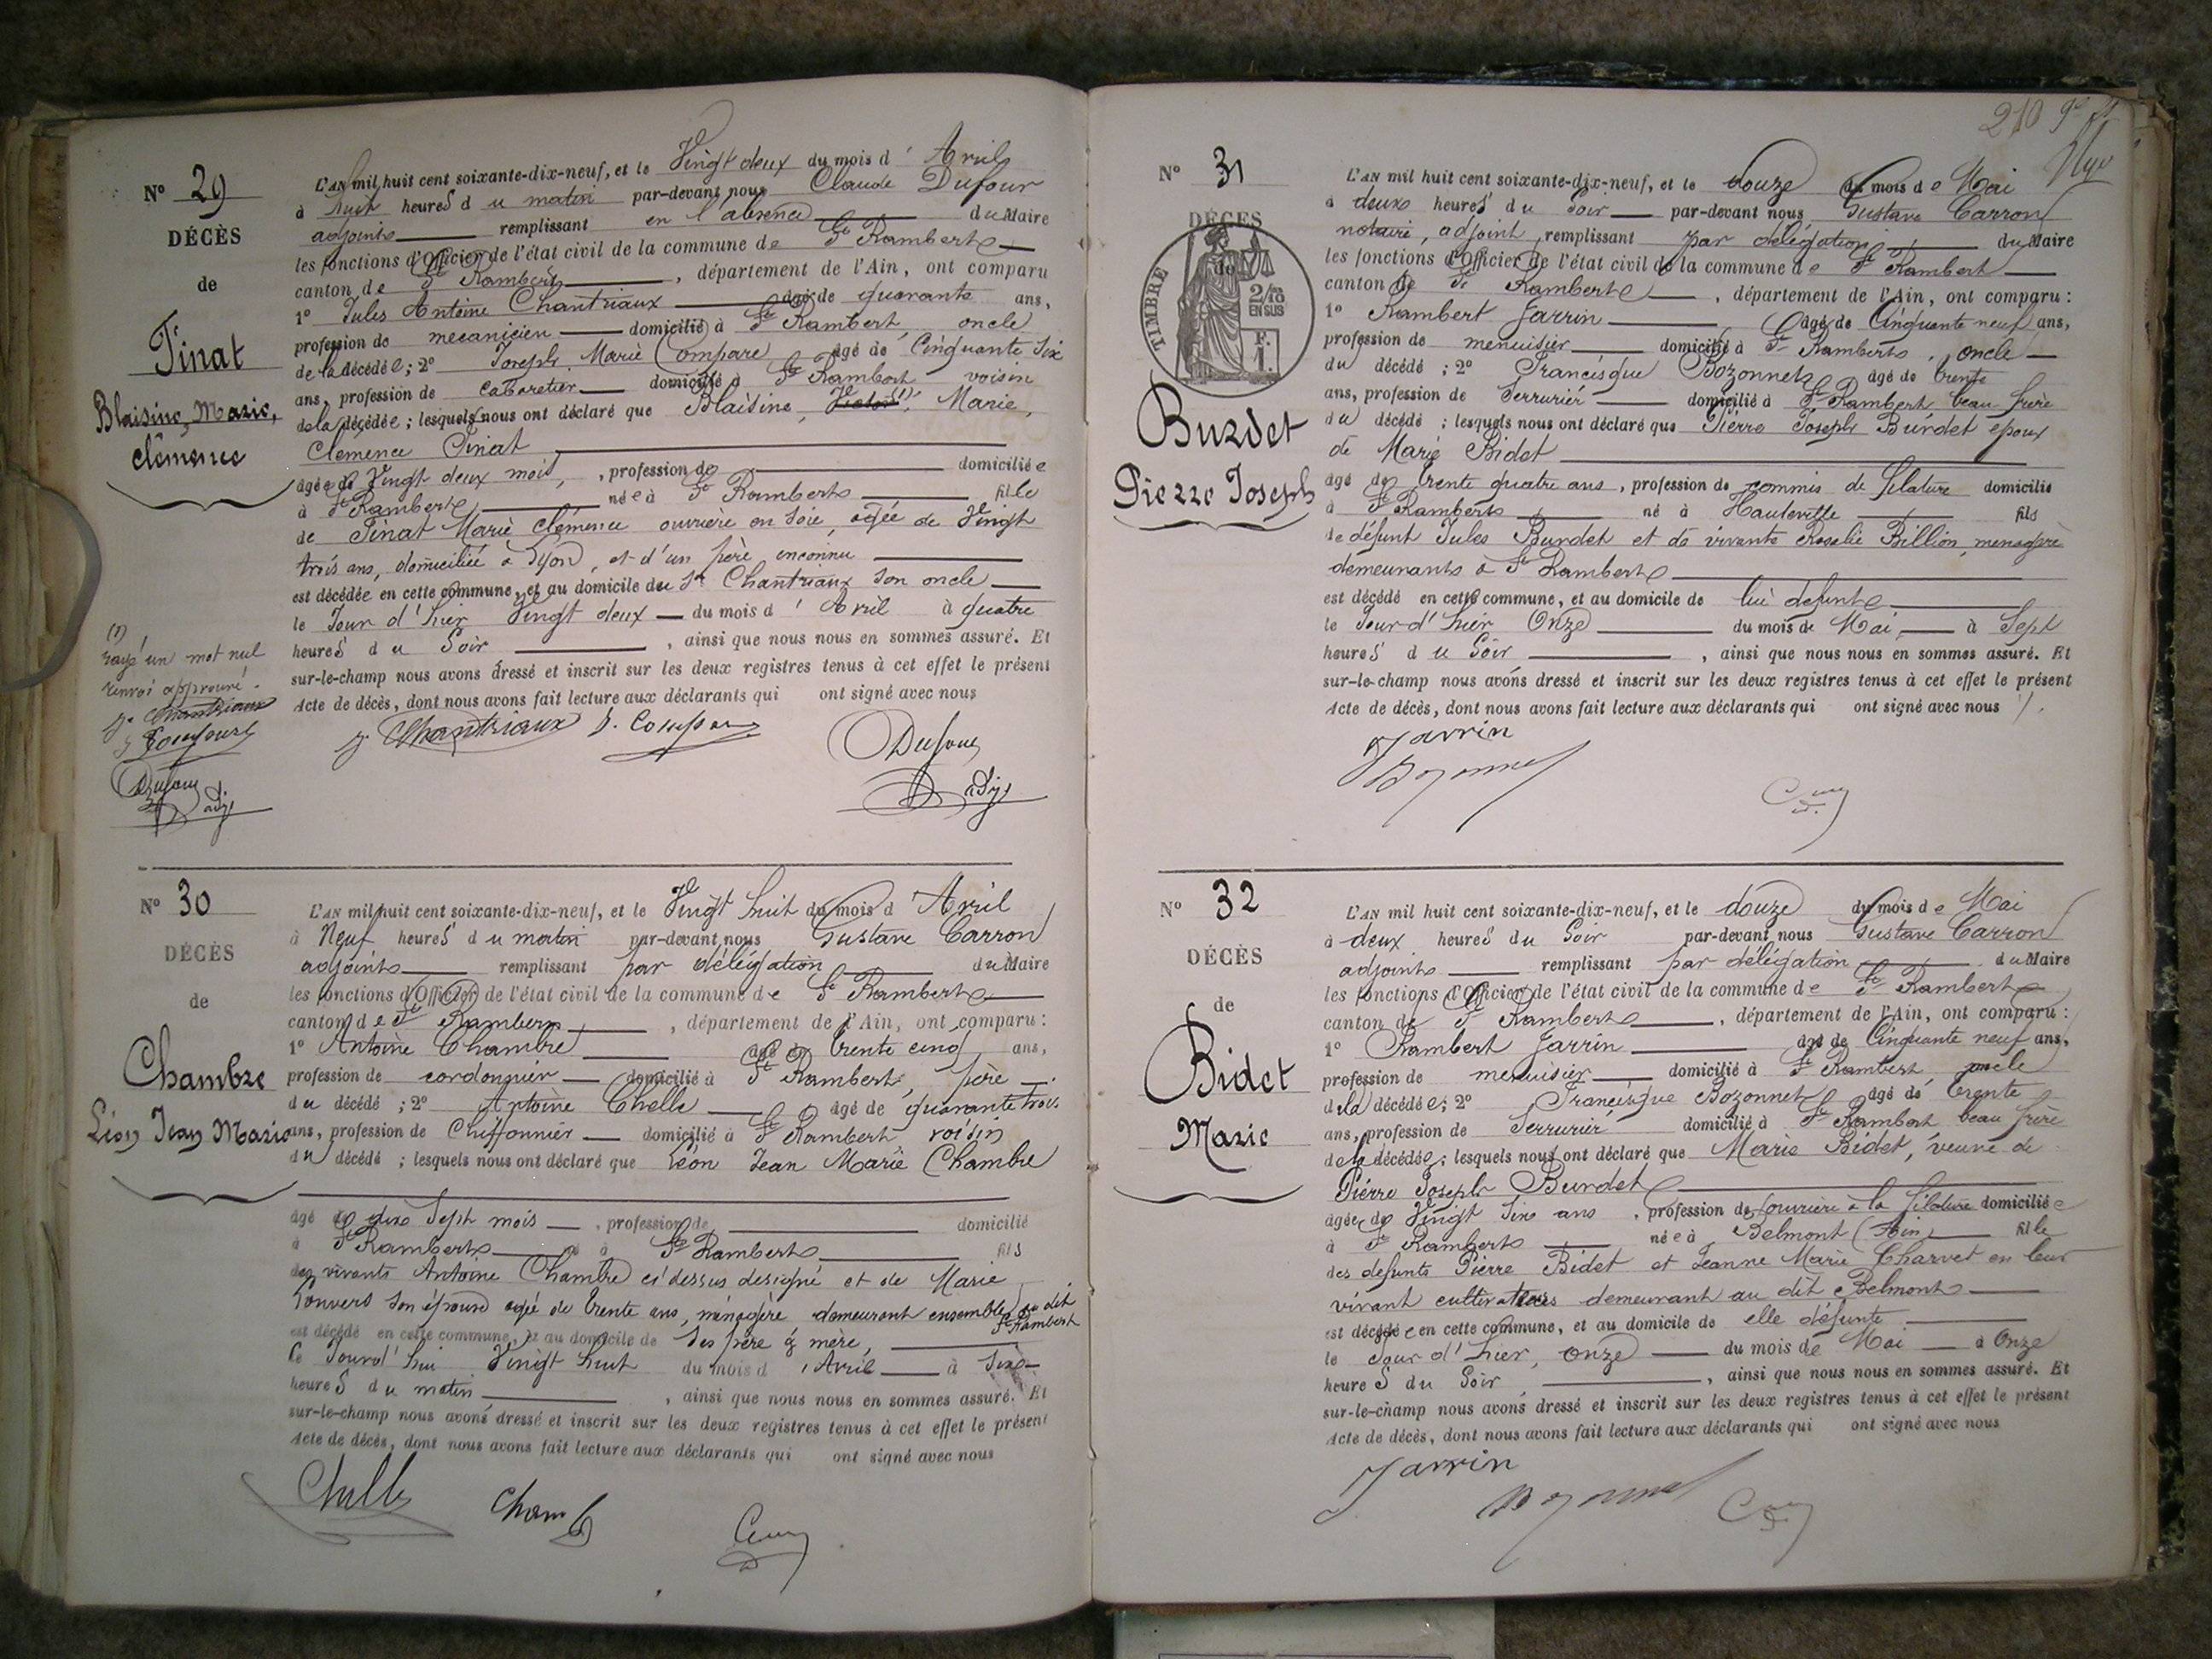 N° 29
DÉCÈS
de
Tinat
Blaisine, Marie,
Clémence
L'AN mil huit cent soixante-dix-neuf, et le Vingt deux du mois d'Avril
à huit heures du matin par-devant nous Claude Dufour
adjoint remplissant en l'absence du Maire
les fonctions d'Officier de l'état civil de la commune de St Rambert
canton de St Rambert, département de l'Ain, ont comparu
1° Jules Antoine Chantriaux âgé de quarante ans,
profession de mecanicien domicilié à St Rambert, oncle
de la décédée; 2° Joseph Marie Compare âgé de Cinquante Six
ans, profession de cabaretier domicilié à St Rambert voisin
de la décédée; lesquels nous ont déclaré que Blaisine, (1) Marie,
Clemence Tinat
âgée de Vingt deux mois, profession de domiciliée
à St Rambert née à St Rambert fille
de Tinat Marie Clémence ouvrière en soie, agée de Vingt
trois ans, domiciliée à Lyon, et d'un père inconnu
est décédée en cette commune, et au domicile du Sr Chantriaux son oncle
le Jour d'hier Vingt deux du mois d'Avril à quatre
heures du Soir, ainsi que nous nous en sommes assuré. Et
sur-le-champ nous avons dressé et inscrit sur les deux registres tenus à cet effet le présent
Acte de décès, dont nous avons fait lecture aux déclarants qui ont signé avec nous
(1)
rayé un mot nul
renvoi approuvé.
J. Chantriaux
Dufour
Adj
J. Chantriaux
Dufour
Adj
N° 30
DÉCÈS
de
Chambre
Léon Jean Marie
L'AN mil huit cent soixante-dix-neuf, et le Vingt huit du mois d'Avril
à Neuf heures du matin par-devant nous Gustave Carron
adjoint remplissant par délégation du Maire
les fonctions d'Officier de l'état civil de la commune de St Rambert
canton de St Rambert, département de l'Ain, ont comparu:
1° Antoine Chambre âgé de trente cinq ans,
profession de cordonnier domicilié à St Rambert, père
du décédé; 2° Antoine Chelle âgé de quarante trois
ans, profession de Chiffonnier domicilié à St Rambert voisin
du décédé; lesquels nous ont déclaré que Léon Jean Marie Chambre
âgé de dix Sept mois, profession de domicilié
à St Rambert né à St Rambert fils
des vivants Antoine Chambre ci dessus designé et de Marie
Convers son épouse agée de trente ans, ménagère demeurant ensemble au dit
St Rambert
est décédé en cette commune, et au domicile de Ses père & mère,
le Jourd'hui Vingt huit du mois d'Avril à Six
heures du matin, ainsi que nous nous en sommes assuré. Et
sur-le-champ nous avons dressé et inscrit sur les deux registres tenus à cet effet le présent
Acte de décès, dont nous avons fait lecture aux déclarants qui ont signé avec nous
Chelle
210
N° 31
DÉCÈS
de
TIMBRE
2/10
EN SUS
F.
1.
Burdet
Pierre Joseph
L'AN mil huit cent soixante-dix-neuf, et le douze du mois de Mai
à deux heures du Soir par-devant nous Gustave Carron
notaire, adjoint, remplissant par délégation du Maire
les fonctions d'Officier de l'état civil de la commune de St Rambert
canton de St Rambert, département de l'Ain, ont comparu:
1° Rambert Jarrin âgé de Cinquante neuf ans,
profession de menuisier domicilié à St Rambert, oncle
du décédé; 2° Francisque Bozonnet âgé de trente
ans, profession de Serrurier domicilié à St Rambert beau frère
du décédé; lesquels nous ont déclaré que Pierre Joseph Burdet epoux
de Marie Bidet
âgé de trente quatre ans, profession de commis de filature domicilié
à St Rambert né à Hauteville fils
de défunt Jules Burdet et de vivante Rosalie Billion, menagère
demeurant à St Rambert
est décédé en cette commune, et au domicile de lui defunt
le Jour d'hier Onze du mois de Mai, à Sept
heures du Soir, ainsi que nous nous en sommes assuré. Et
sur-le-champ nous avons dressé et inscrit sur les deux registres tenus à cet effet le présent
Acte de décès, dont nous avons fait lecture aux déclarants qui ont signé avec nous
Jarrin
Bozonnet
N° 32
DÉCÈS
de
Bidet
Marie
L'AN mil huit cent soixante-dix-neuf, et le douze du mois de Mai
à deux heures du Soir par-devant nous Gustave Carron
adjoint remplissant par délégation du Maire
les fonctions d'Officier de l'état civil de la commune de St Rambert
canton de St Rambert, département de l'Ain, ont comparu:
1° Rambert Jarrin âgé de Cinquante neuf ans,
profession de menuisier domicilié à St Rambert oncle
de la décédée; 2° Francisque Bozonnet âgé de trente
ans, profession de Serrurier domicilié à St Rambert beau frère
de la décédée; lesquels nous ont déclaré que Marie Bidet, veuve de
Pierre Joseph Burdet
âgée de Vingt Six ans, profession de ouvrière à la filature domiciliée
à St Rambert née à Belmont (Ain) fille
des defunts Pierre Bidet et Jeanne Marie Charvet en leur
vivant cultivateurs demeurant au dit Belmont
est décédée en cette commune, et au domicile de elle défunte
le Jour d'hier, onze du mois de Mai à Onze
heures du Soir, ainsi que nous nous en sommes assuré. Et
sur-le-champ nous avons dressé et inscrit sur les deux registres tenus à cet effet le présent
Acte de décès, dont nous avons fait lecture aux déclarants qui ont signé avec nous
Jarrin
Bozonnet